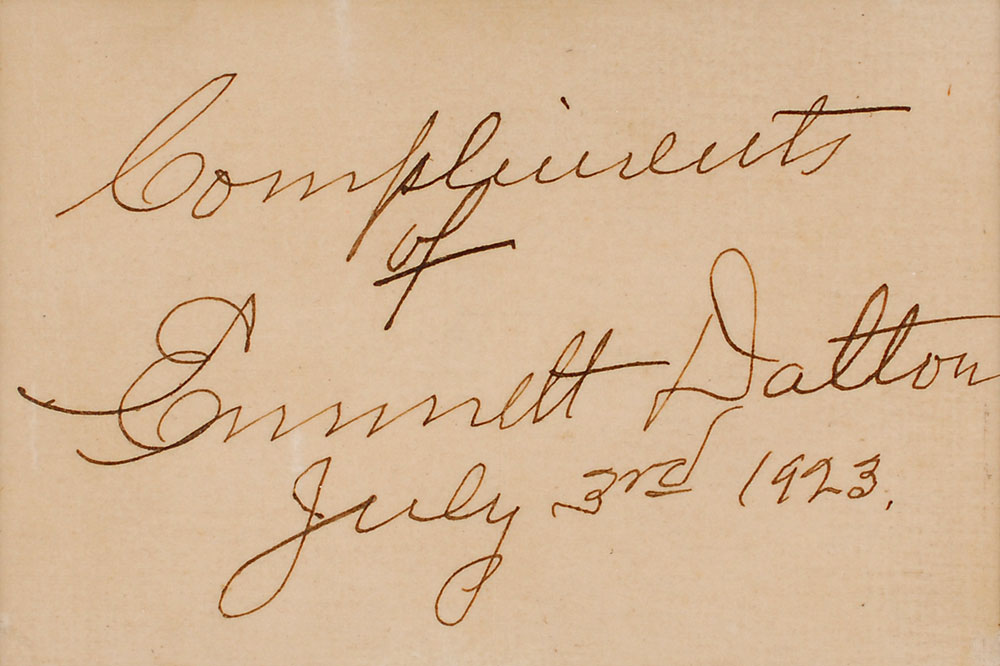 Compliments
of
Emmett Dalton
July 3rd 1923.